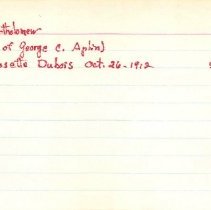 tholomew
of George C. Aplin)
sette Dubois Oct. 26-1912